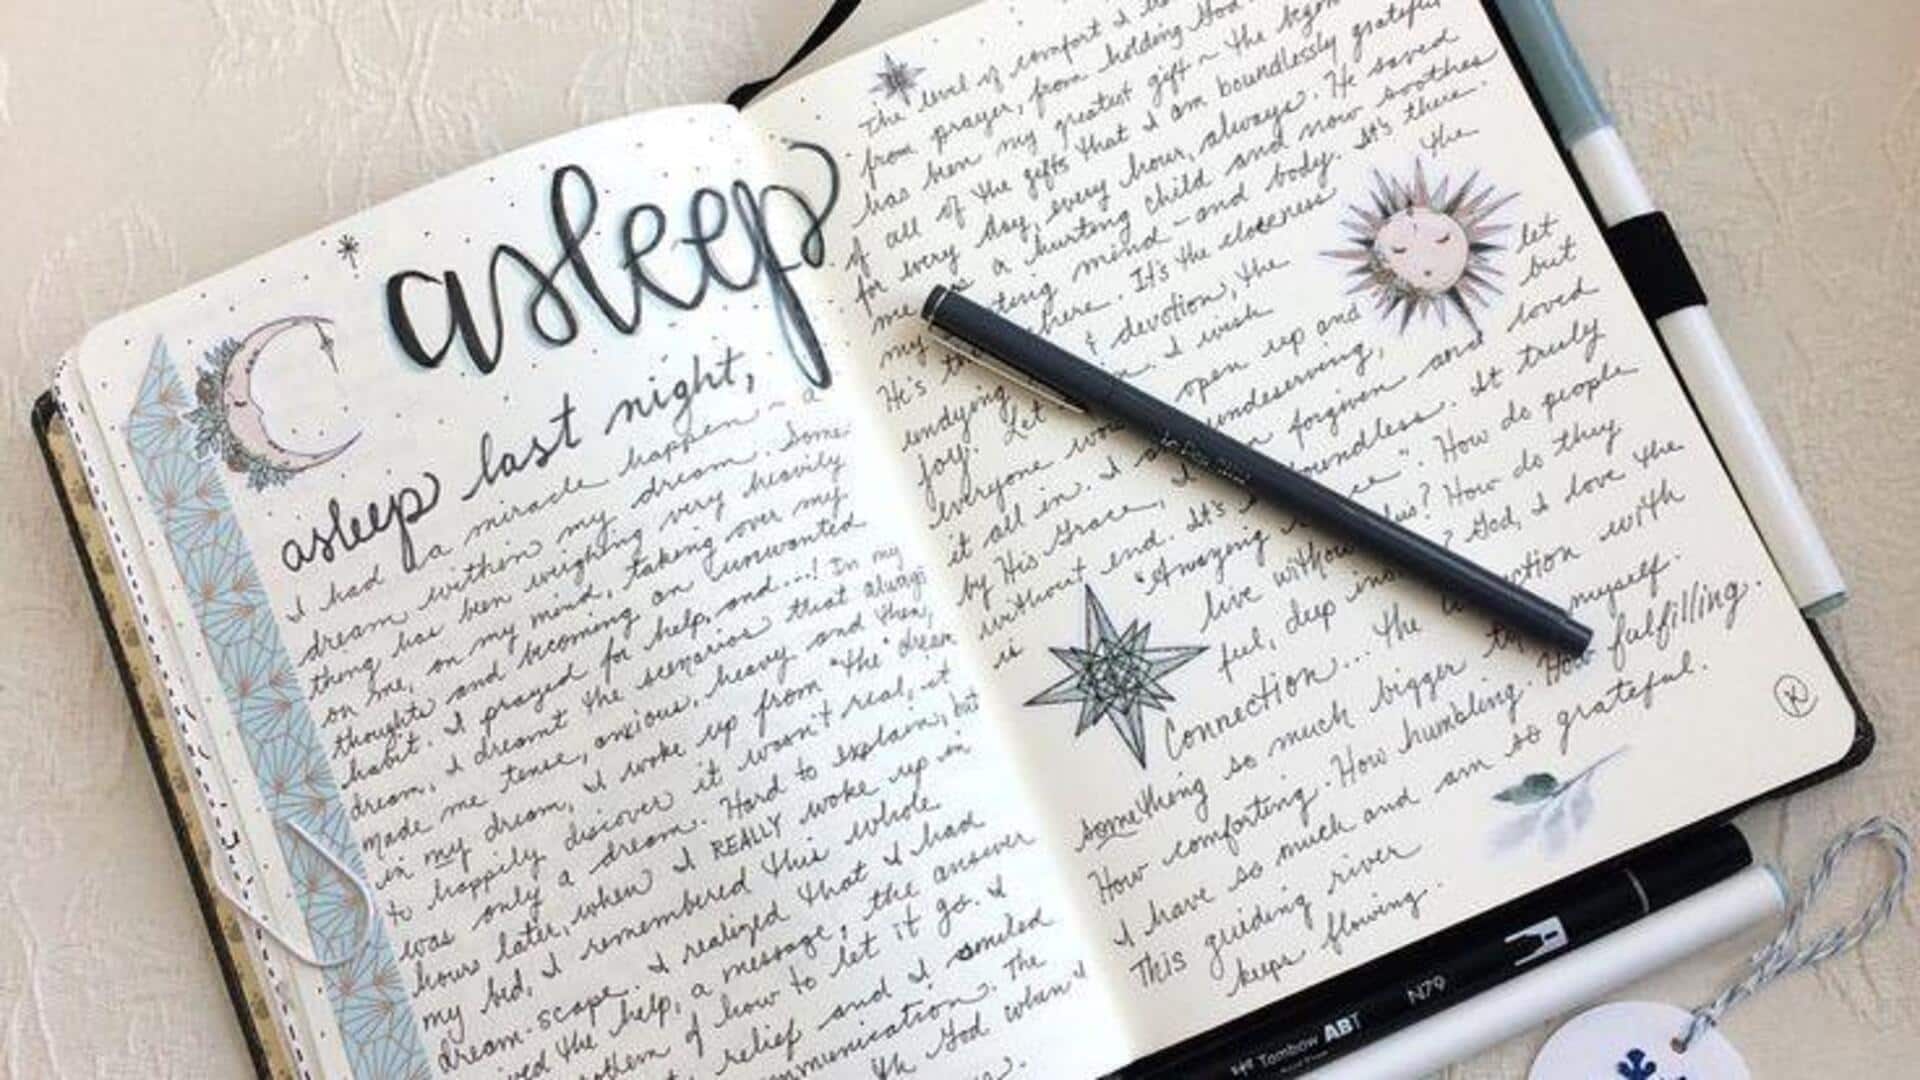 asleep
asleep last night,
I had a miracle happen ~ a
dream within my dream. Some
thing has been weighing very heavily
on me, on my mind, taking over my
thoughts and becoming an unwanted
habit. I prayed for help, and...! In my
dream, I dreamt the scenarios that always
made me tense, anxious, heavy and then,
in my dream, I woke up from "the" dream
to happily discover it wasn't real, it
was only a dream. Hard to explain, but
hours later, when I REALLY woke up in
my bed, I remembered this whole
dream-scape. I realized that I had
the help, a message, the answer
of how to let it go. I
relief and I smiled
communication. The
God when I
The level of comfort I
from prayer, from holding God
has been my greatest gift ~ the
of all of the gifts that I am boundlessly grateful
for every day, every hour, always. He saved
me as a hurting child and now soothes
my mind - and body. It's there.
He's there. It's the closeness the
undying devotion, the
joy. Let I wish let
everyone open up and but
it all in. I undeserving,
by His Grace, I forgiven and loved
without end. It's boundless. It truly
is "Amazing". How do people
live this? How do they
feel, deep ? God, I love the
Connection... the with
something so much bigger myself.
How comforting. How humbling. How fulfilling.
I have so much and am so grateful.
This guiding river
keeps flowing.
K
Tombow ABT
N79